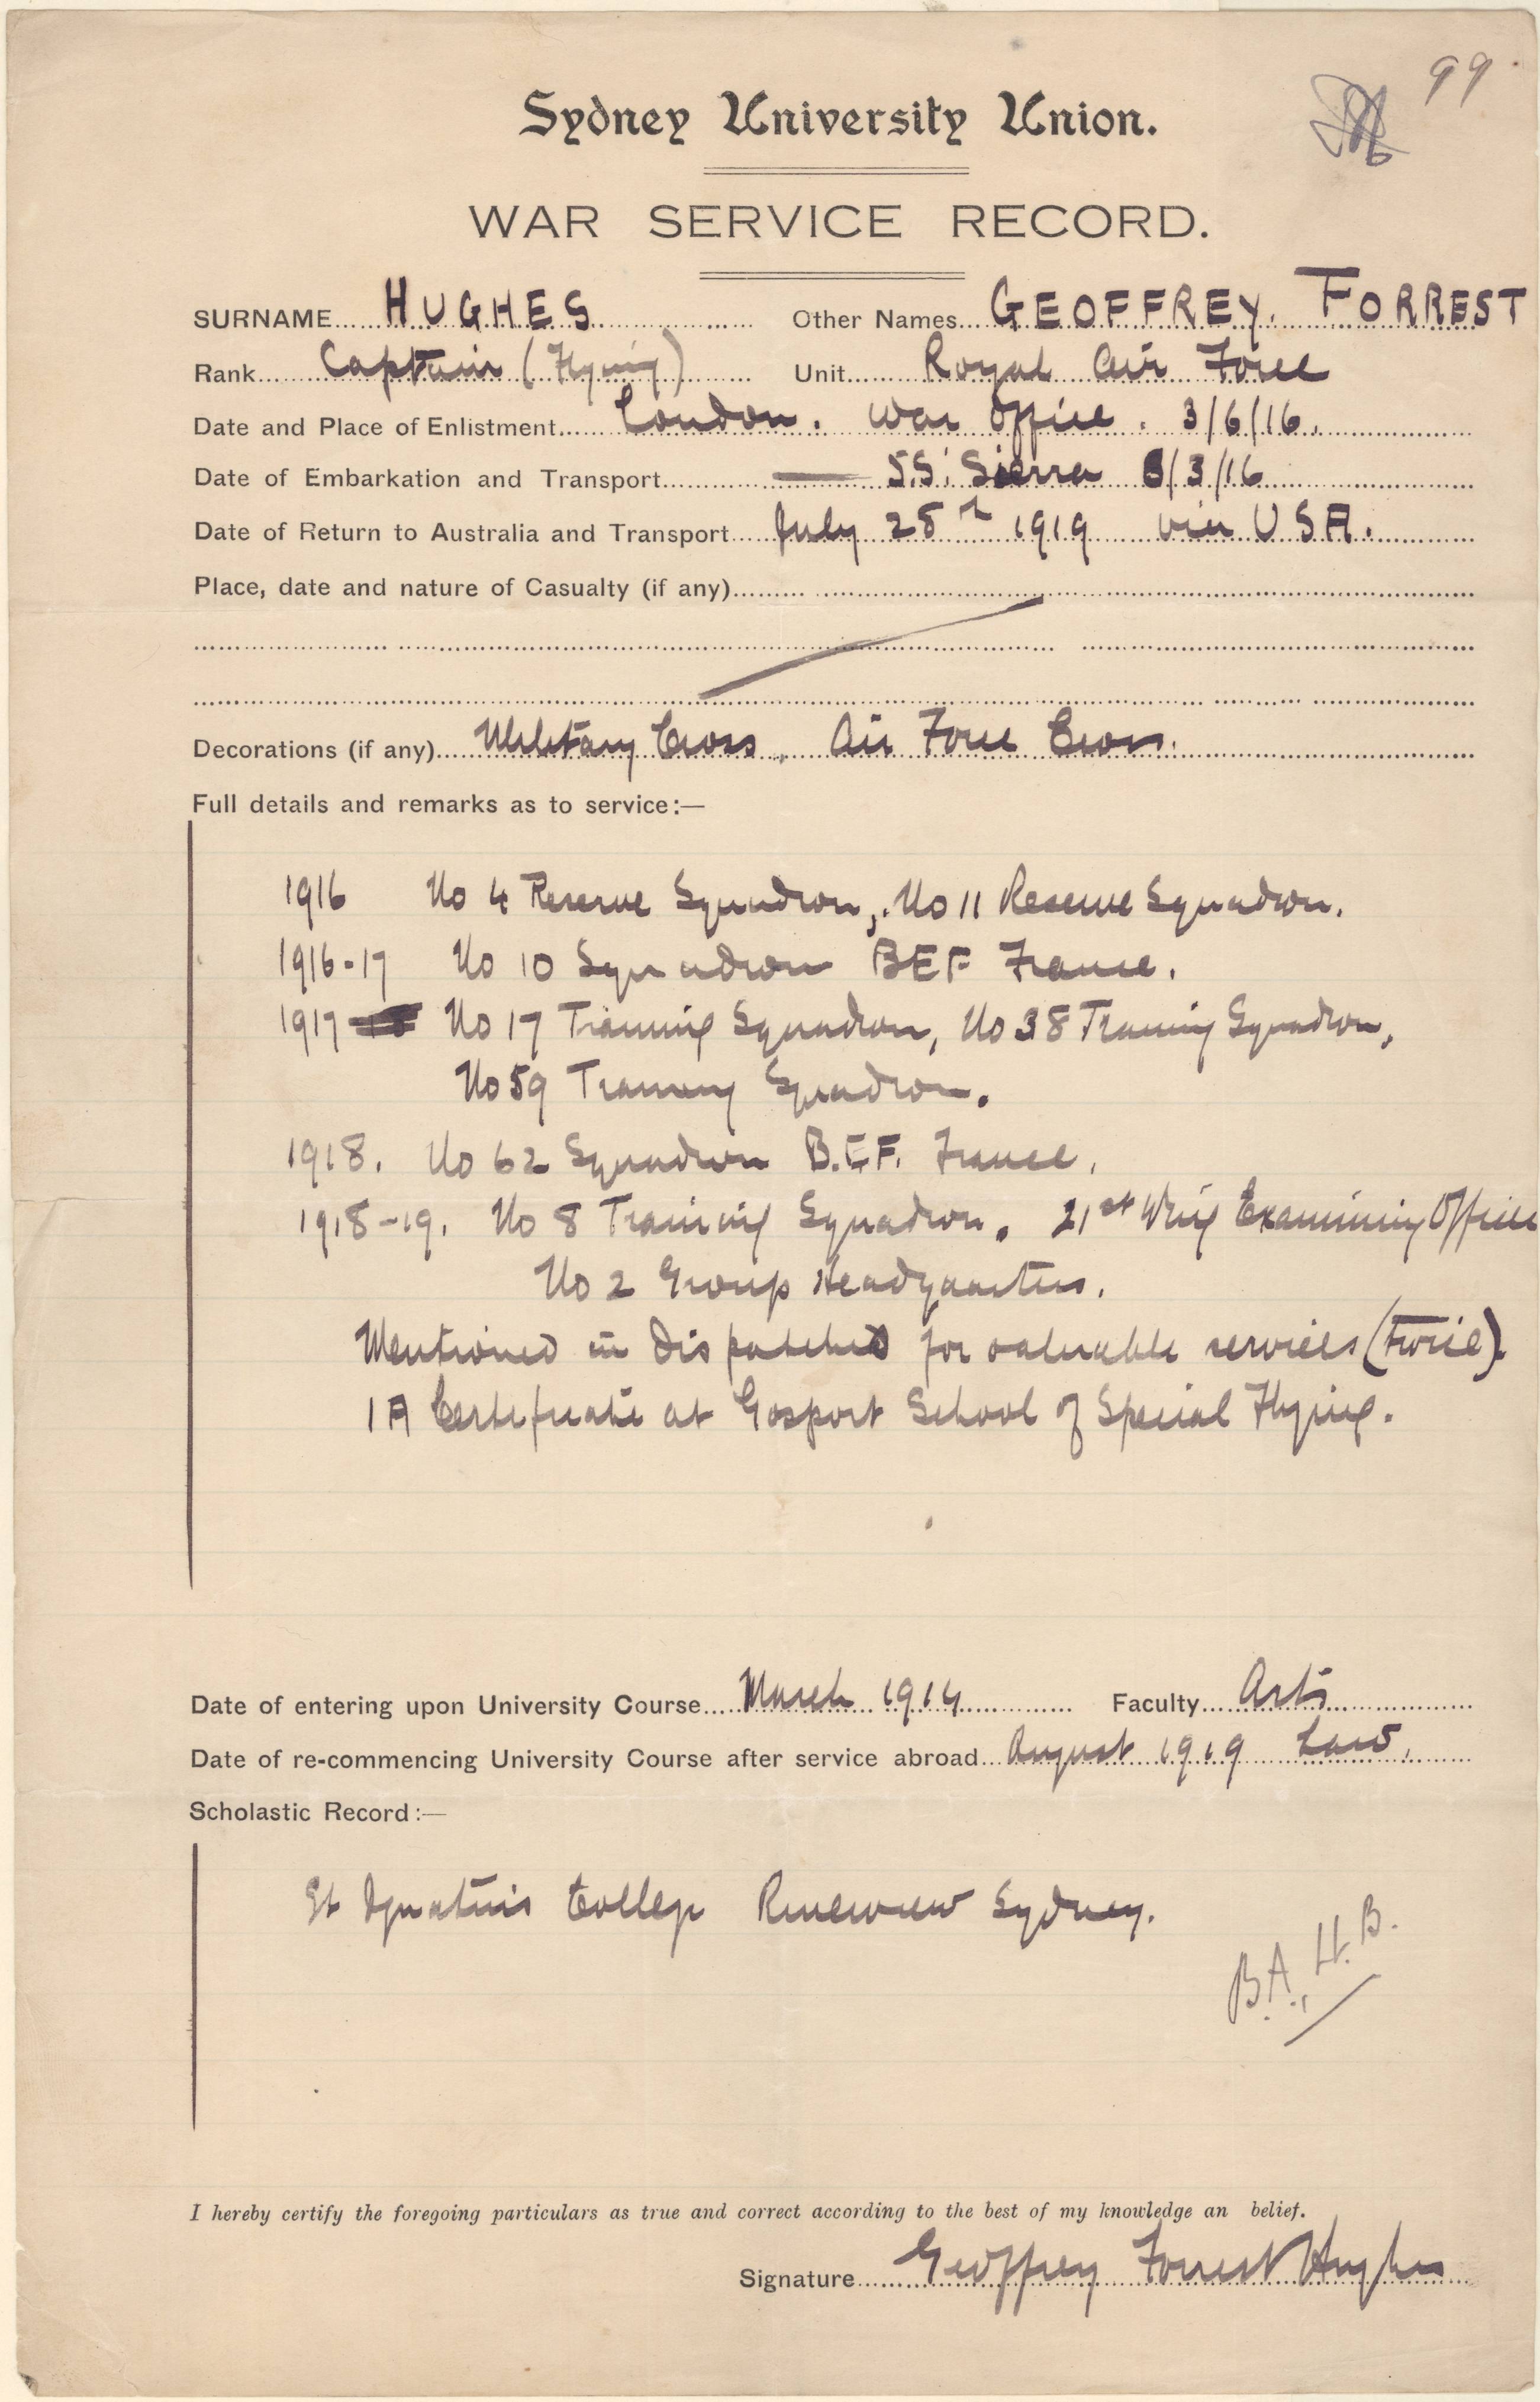 99.
Sydney University Union.
WAR SERVICE RECORD.
SURNAME HUGHES Other Names GEOFFREY. FORREST
Rank Captain (Flying) Unit Royal Air Force
Date and Place of Enlistment London. War Office. 3/6/16.
Date of Embarkation and Transport — S.S. Sierra 8/3/16
Date of Return to Australia and Transport July 28th 1919 via USA.
Place, date and nature of Casualty (if any)
Decorations (if any) Military Cross, Air Force Cross.
Full details and remarks as to service:—
1916 No 4 Reserve Squadron, No 11 Reserve Squadron.
1916-17 No 10 Squadron BEF France.
1917 No 17 Training Squadron, No 38 Training Squadron,
No 59 Training Squadron.
1918. No 62 Squadron B.E.F. France.
1918-19. No 8 Training Squadron. 21st Wing Examining Officer
No 2 Group Headquarters.
Mentioned in Dispatches for valuable services (twice).
1A Certificate at Gosport School of Special Flying.
Date of entering upon University Course March 1914 Faculty Arts
Date of re-commencing University Course after service abroad August 1919 Law.
Scholastic Record:—
St Ignatius College Riverview Sydney.
B.A., Ll.B.
I hereby certify the foregoing particulars as true and correct according to the best of my knowledge an belief.
Signature Geoffrey Forrest Hughes